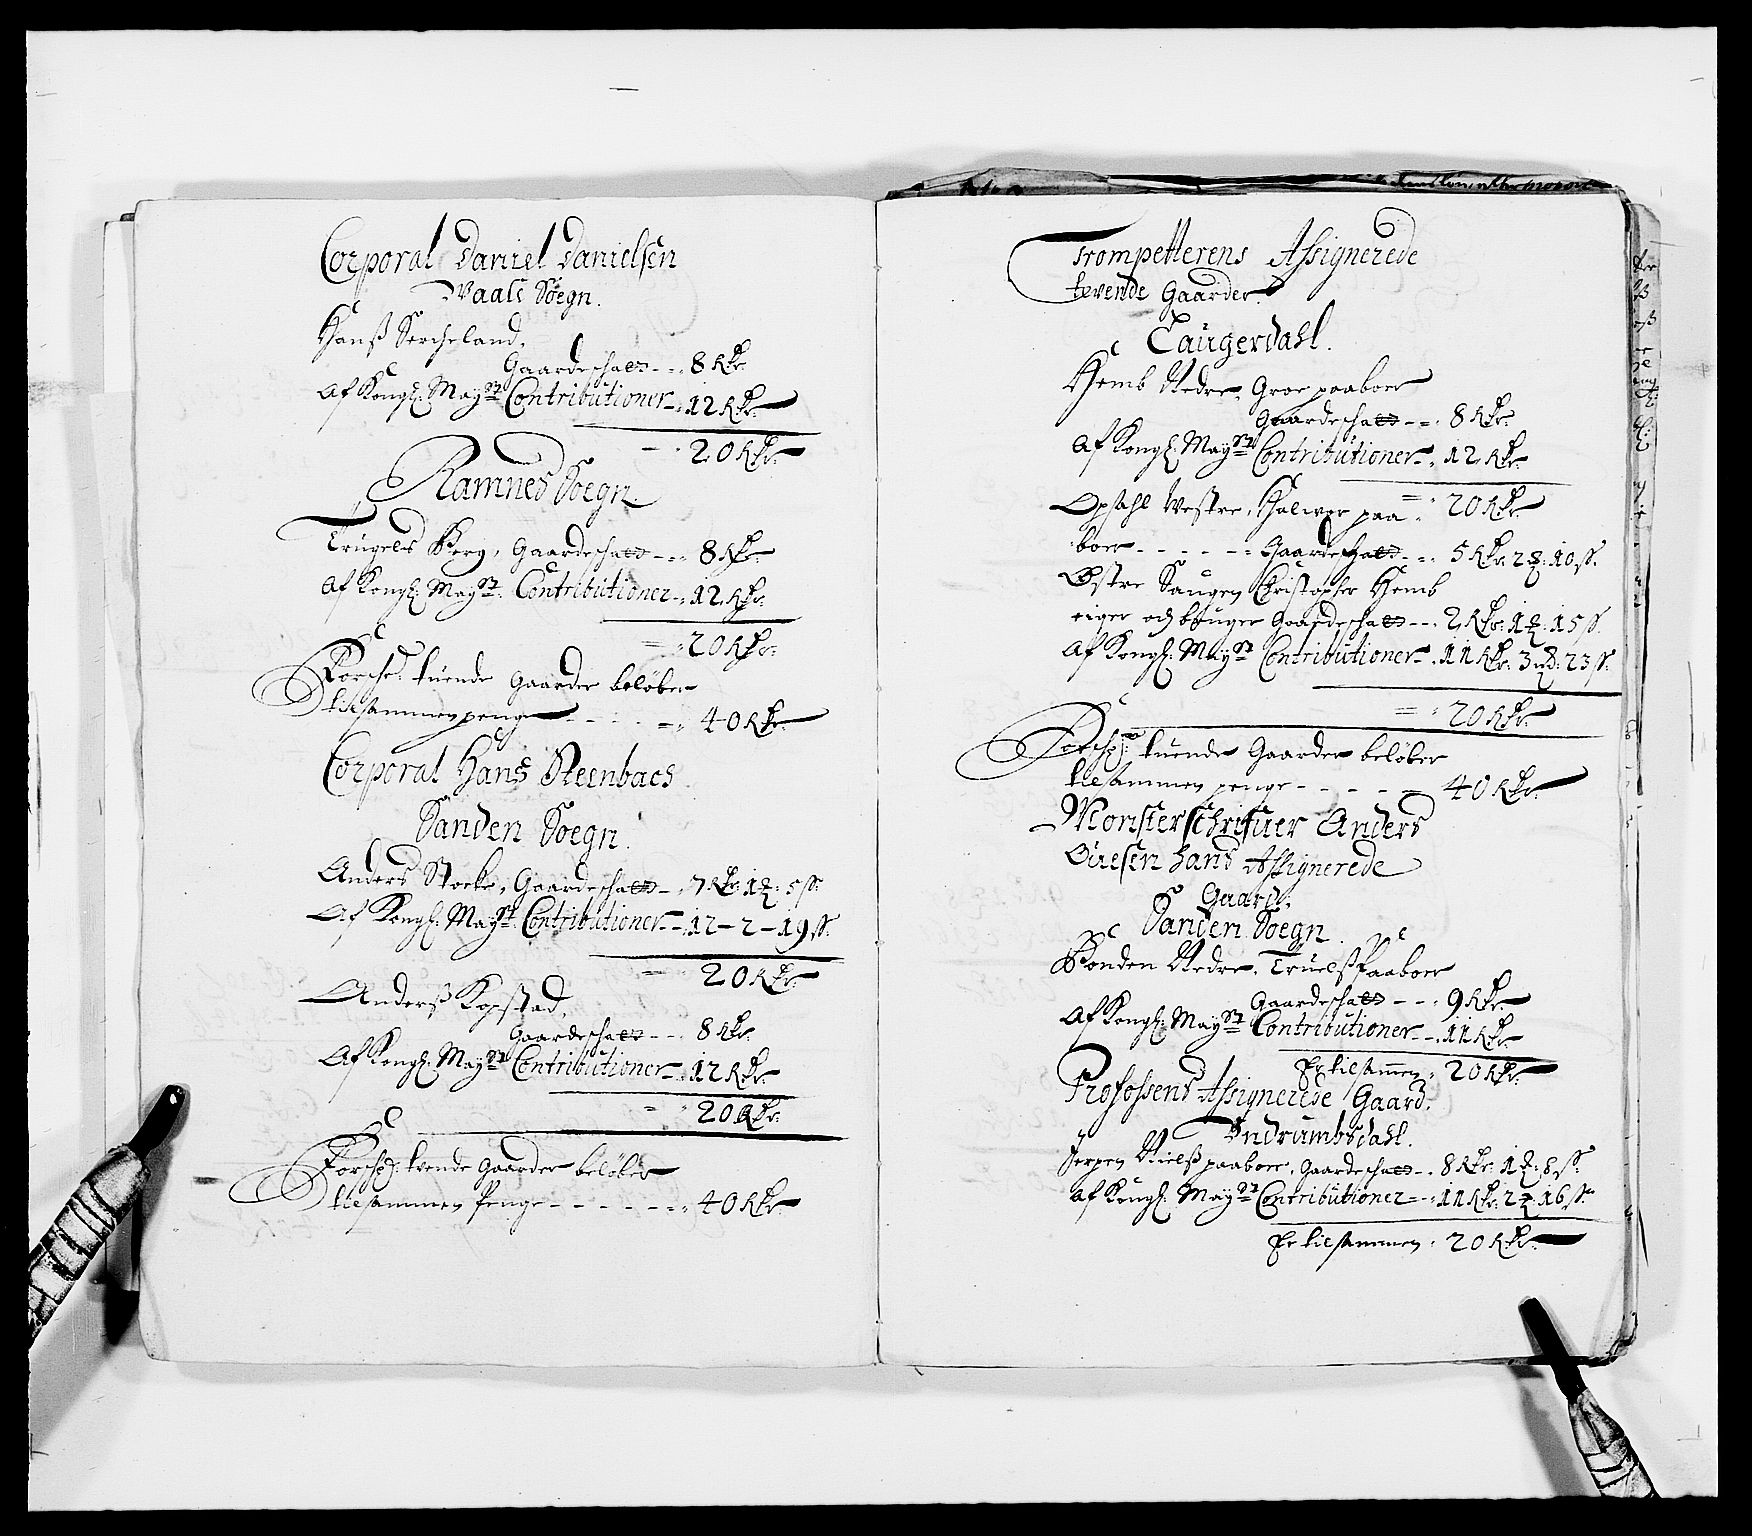 Corporal Daniel Danielsen
Vaale Sogn.
Hanß Sercheland,
Gaardeschatt - - - 8 Rdr
Af Kongl: Maysts Contributioner - 12 Rdr
20 Rdr
Ramnes Sogn.
Trugels Berg, Gaardeschatt - - - 8 Rdr
Af Kongl: Mayst: Contributioner - 12 Rdr:
20 Rdr:
Forsche: tuende Gaarder beløber
tilsammen penge - - - - 40 Rdr
Corporal Hans Steenbach
Sanden Sogn.
Anders Stocke, Gaardeschatt - 7 Rdr: 1 : 5 ß:
Af Kongl: Mayst: Contributioner - 12 - 2 - 19 ß.
20 Rdr:
Anderß Kopstad,
Gaardeschatt - - - 8 Rdr.
Af Kongl: Maysts Contributioner - 12 Rdr:
20 Rdr:
Forsche: tvende Gaarder beløber
tilsammen Penge - - - - - - 40 Rdr
Trompetterens Assignerede
tevende Gaarder.
Laugerdahl.
Hemb Nedre, Groe paaboer
Gaardeschatt - - - 8 Rdr:
Af Kongl: Maysts Contributioner - 12 Rdr:
20 Rdr:
Opsahl Vestre, Halvor paa-
boer - - - - - Gaardeschatt - - - 5 Rdr: 2 : 10 ß.
Østre Saugen Christopher Hemb
eiger och bruger Gaardeschatt - - - 2 Rdr: 1 : 15 ß.
Af Kongl: Mayst Contributioner - 11 Rdr: 3 : 23 ß.
20 Rdr:
Forsche: tuende Gaarder beløber
tilsammen penge - - - - - 40 Rdr:
Monsterschrifuer Anders
Olesen hans Assignerede
Gaard.
Sanden Sogn.
Bonden Nedre, Truelß Paaboer
Gaardeschatt - - - 9 Rdr:
Af Kongl: Mayst Contributioner - 11 Rdr:
Er tilsammen, 20 Rdr:
Profossens Assignerede Gaard.
Undrumbsdahl.
Jerpen Nielß paaboer, Gaardeschatt - - 8 Rdr: 1 : 8 ß:
Af Kongl: Maysts Contributioner - 11 Rdr: 2 : 16 ß:
Er tilsammen, 20 Rdr: